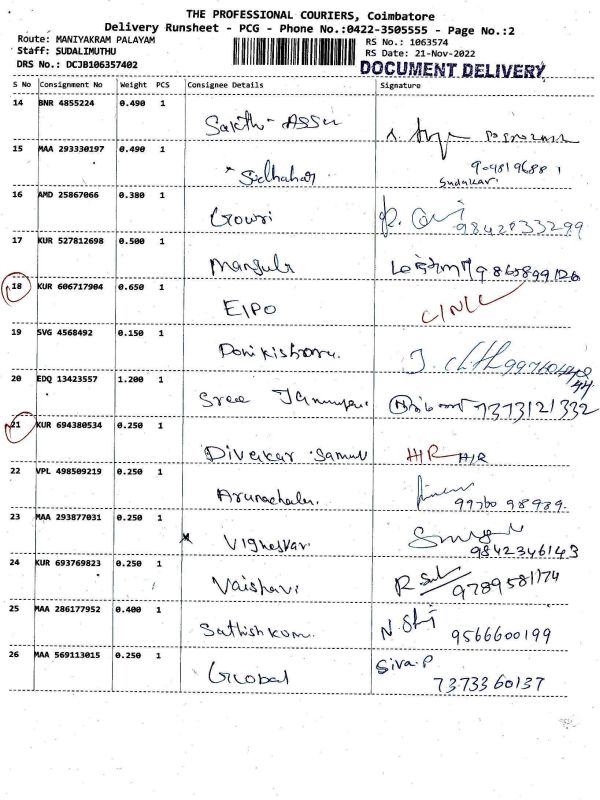 THE PROFESSIONAL COURIERS, Coimbatore
Delivery Runsheet - PCG - Phone No.:0422-3505555 - Page No.:2
Route: MANIYAKRAM PALAYAM
RS No.: 1063574
Staff: SUDALIMUTHU
RS Date: 21-Nov-2022
DRS No.: DCJB106357402
DOCUMENT DELIVERY
S No Consignment No Weight PCS Consignee Details Signature
14 BNR 4855224 0.490 1
Sakthi
15 MAA 293330197 0.490 1
Sudhahar
Sudakar
16 AMD 25867066 0.380 1
Gowri
9842833299
17 KUR 527812698 0.500 1
Manjula
18 KUR 606717904 0.650 1
EIPO
19 SVG 4568492 0.150 1
20 EDQ 13423557 1.200 1
Sree
7373121332
21 KUR 694380534 0.250 1
Divakar Samuel H/R H/R
22 VPL 498509219 0.250 1
Arunachalam
99760 98989.
23 MAA 293877031 0.250 1
Vigneskar
9842346143
24 KUR 693769823 0.250 1
Vaishavi
9789581174
25 MAA 286177952 0.400 1
Sathishkum.
9566600199
26 MAA 569113015 0.250 1
Global Siva.P
7373360137